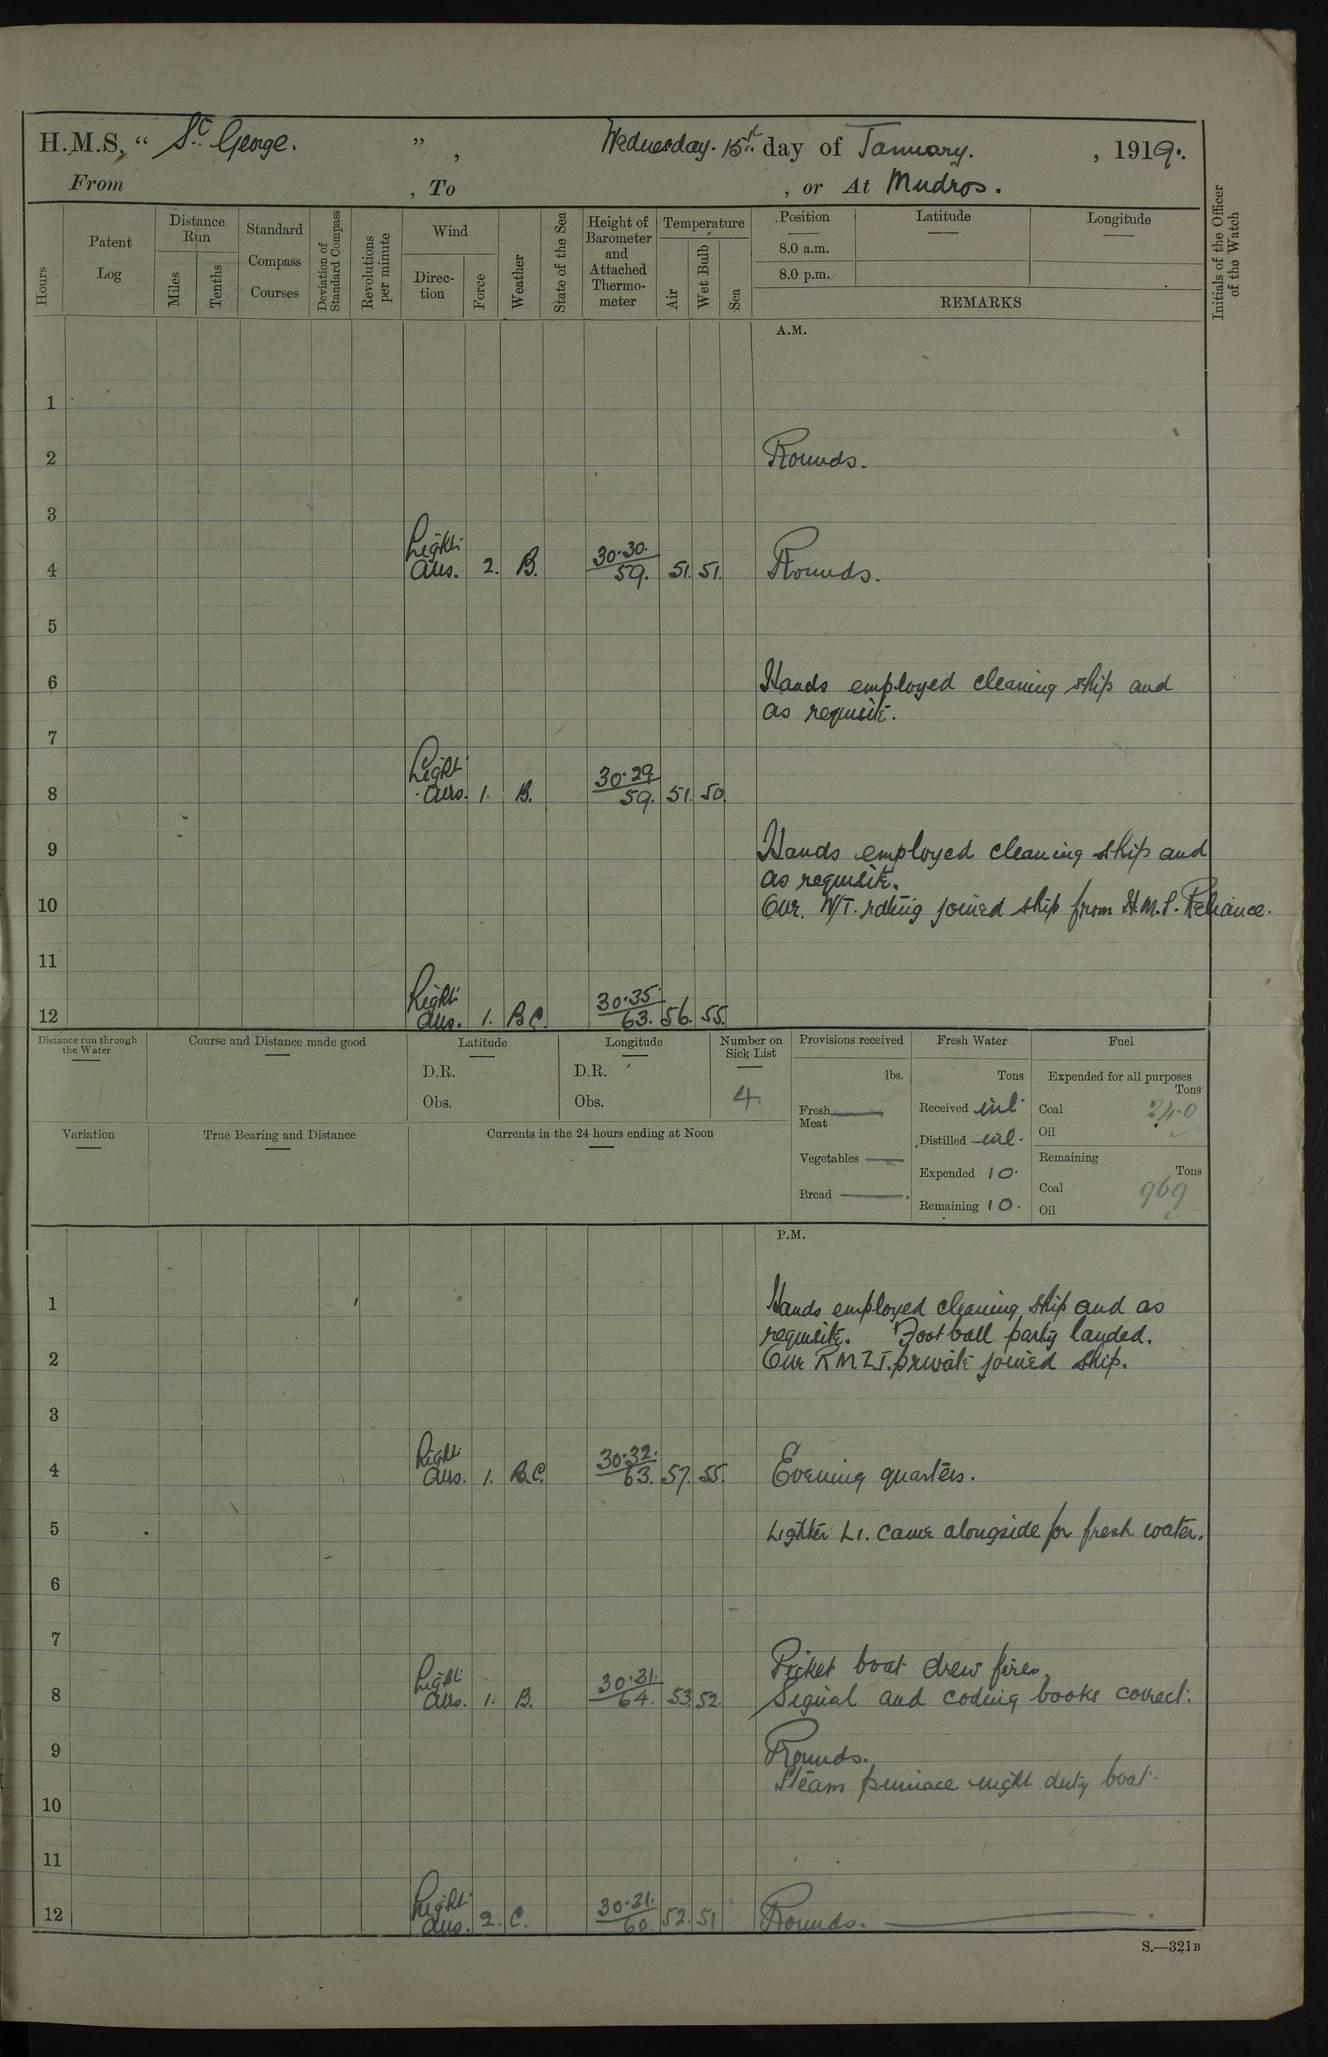 H.M.S. “ St. George. ”, Wednesday. 15th day of January. , 1919.
From , To , or At Mudros.
Hours
Patent Log
Distance Run
Miles
Tenths
Standard Compass Courses
Deviation of Standard Compass
Revolutions per minute
Wind
Direc-tion
Force
Weather
State of the Sea
Height of Barometer and Attached Thermo-meter
Temperature
Air
Wet Bulb
Sea
Position
8.0 a.m.
8.0 p.m.
Latitude
Longitude
REMARKS
Initials of the Officer of the Watch
A.M.
1
2 Rounds.
3
4 Light airs. 2. B. 30.30. 59. 51. 51. Rounds.
5
6 Hands employed cleaning ship and
as requisite.
7
8 Light airs. 1. B. 30.29 59. 51. 50.
9 Hands employed cleaning ship and
as requisite.
10 One W/T. rating joined ship from H.M.S. Reliance.
11
12 Light airs. 1. B.C. 30.35. 63. 56. 55.
Distance run through the Water
Course and Distance made good
Latitude
D.R.
Obs.
Longitude
D.R.
Obs.
Number on Sick List
4.
Variation
True Bearing and Distance
Currents in the 24 hours ending at Noon
Provisions received
lbs.
Fresh Meat
Vegetables
Bread
Fresh Water
Tons
Received nil.
Distilled nil.
Expended 10.
Remaining 10.
Fuel
Expended for all purposes
Tons
Coal 24.0
Oil
Remaining
Tons
Coal 969
Oil
P.M.
1 Hands employed cleaning ship and as
requisite. Football party landed.
2 One R M L I. private joined ship.
3
4 Light airs. 1. B.C. 30.32. 63. 57. 55. Evening quarters.
5 Lighter L1. came alongside for fresh water.
6
7
Picket boat drew fires.
8 Light airs. 1. B. 30.31. 64. 53. 52. Signal and coding books correct.
9 Rounds.
Steam pinnace night duty boat.
10
11
12 Light airs. 2. C. 30.31. 60. 52. 51 Rounds.
S.—321B